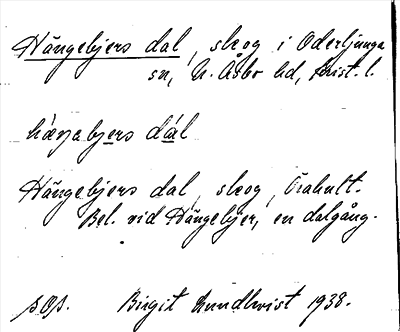 Hängebjers dal, skog i Oderljunga
sn, N. Åsbo hd, Krist. l.
hæŋabjers dál
Hängebjers dal, skog, Örahult.
Bel. vid Hängebjer, en dalgång.
Birgit Lundkvist 1938.